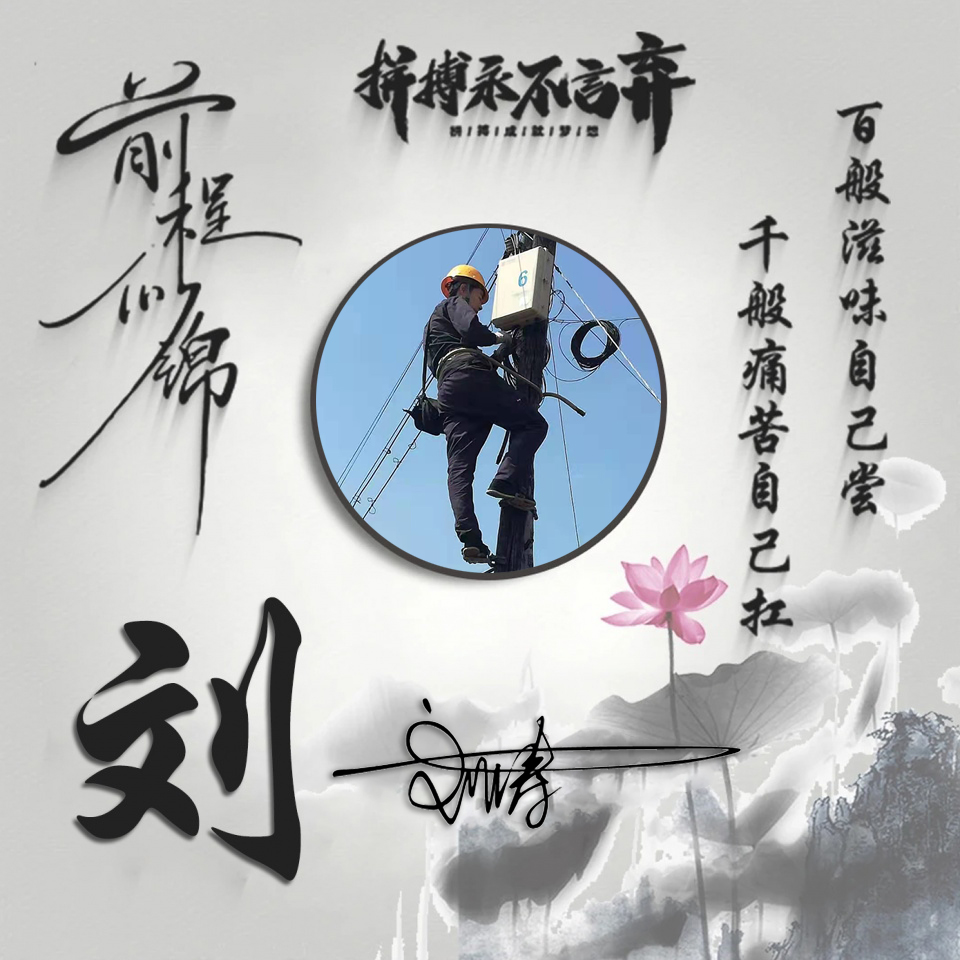 拼搏永不言弃
拼/搏/成/就/梦/想
百般滋味自己尝
千般痛苦自己扛
前程似锦
6
刘
刘涛